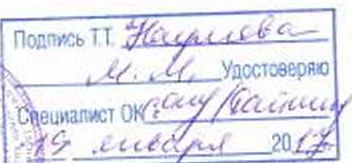 Подпись Т.Т. Наумова
М.М. Удостоверяю
Специалист ОК
19 января 2017